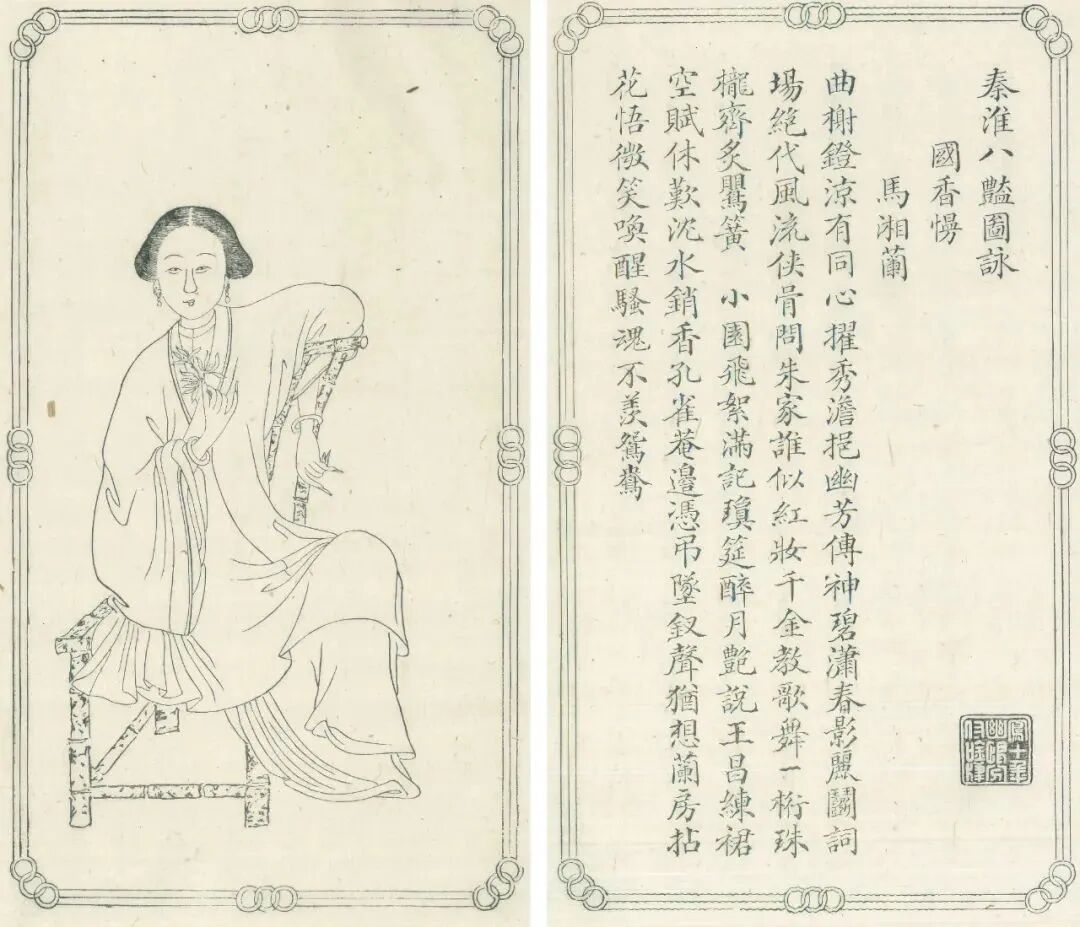 秦淮八豔圖詠
國香慢
馬湘蘭
曲榭鐙涼有同心擢秀澹挹幽芳傳神碧瀟春影麗鬬詞
場絕代風流俠骨問朱家誰似紅妝千金教歌舞一桁珠
櫳齊炙鸎簧　小園飛絮滿記瓊筵醉月艷說王昌練裙
空賦休歎沈水銷香孔雀菴邊憑弔墜釵聲猶想蘭房拈
花悟微笑喚醒騷魂不羨鴛鴦